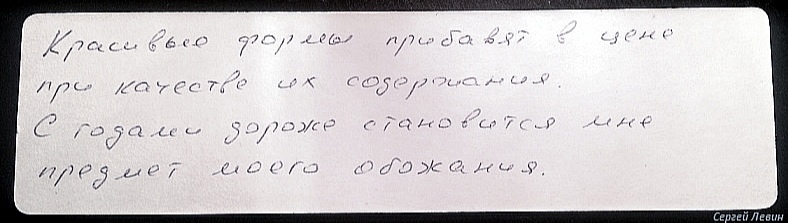 Красивые формы прибавят в цене
при качестве их содержания.
С годами дороже становится мне
предмет моего обожания.
Сергей Левин